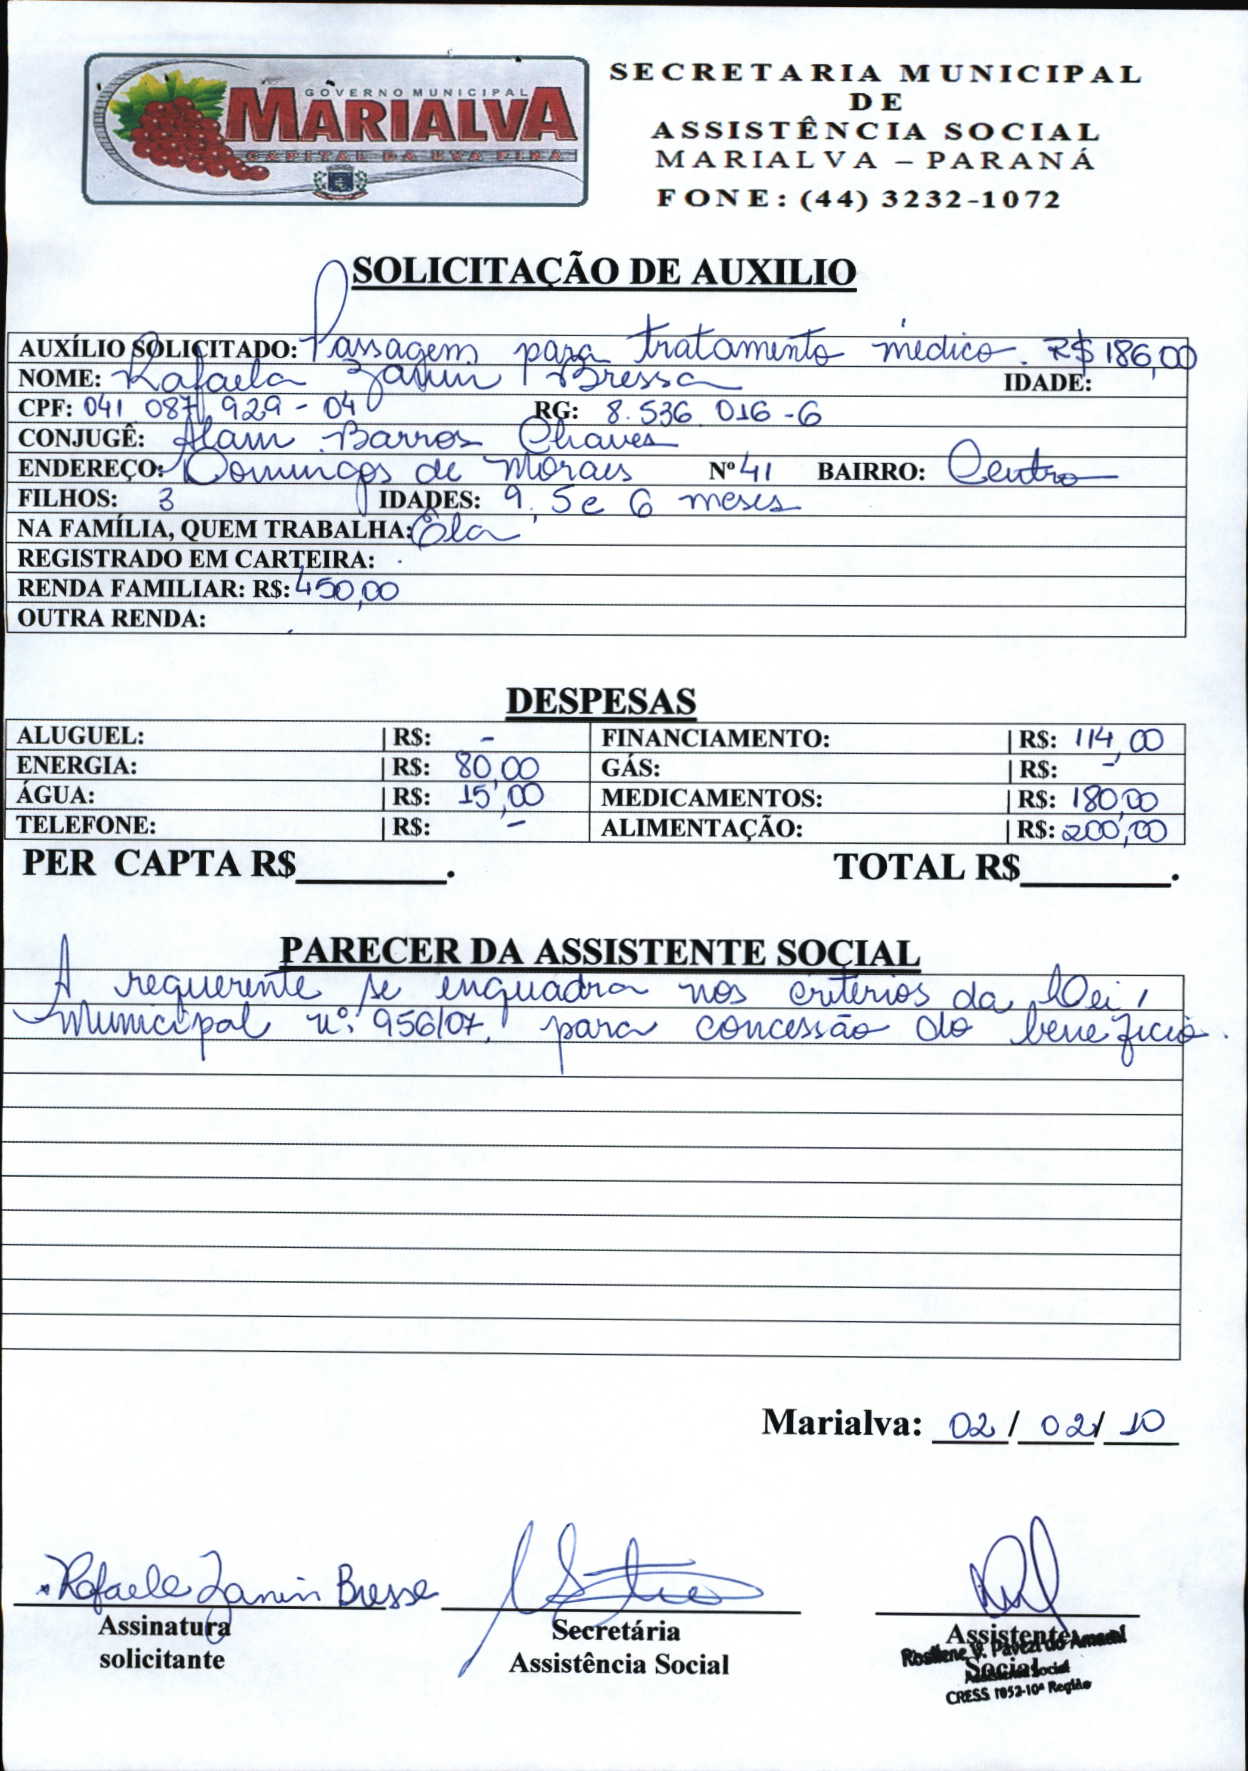 GOVERNO MUNICIPAL
MARIALVA
CAPITAL DA UVA FINA
SECRETARIA MUNICIPAL
DE
ASSISTÊNCIA SOCIAL
MARIALVA – PARANÁ
FONE: (44) 3232-1072
SOLICITAÇÃO DE AUXILIO
AUXÍLIO SOLICITADO: Passagem para tratamento médico. R$ 186,00
NOME: Rafaela Zanin Bressa IDADE:
CPF: 041 087 929-04 RG: 8.536 016-6
CONJUGÊ: Alam Barros Chaves
ENDEREÇO: Domingos de Moraes Nº 41 BAIRRO: Centro
FILHOS: 3 IDADES: 9, 5 e 6 meses
NA FAMÍLIA, QUEM TRABALHA: Ela
REGISTRADO EM CARTEIRA:
RENDA FAMILIAR: R$: 450,00
OUTRA RENDA:
DESPESAS
ALUGUEL: | R$: - FINANCIAMENTO: | R$: 114,00
ENERGIA: | R$: 80,00 GÁS: | R$: -
ÁGUA: | R$: 15,00 MEDICAMENTOS: | R$: 180,00
TELEFONE: | R$: - ALIMENTAÇÃO: | R$: 200,00
PER CAPTA R$________. TOTAL R$________.
PARECER DA ASSISTENTE SOCIAL
A requerente se enquadra nos critérios da Lei
Municipal nº. 956/07, para concessão do benefício.
Marialva: 02/02/10
Rafaela Zanin Bressa
Assinatura solicitante
Secretária
Assistência Social
Assistente
Social
Rosilene V. Pavezi do Amaral
Assistente Social
CRESS 1052-10ª Região